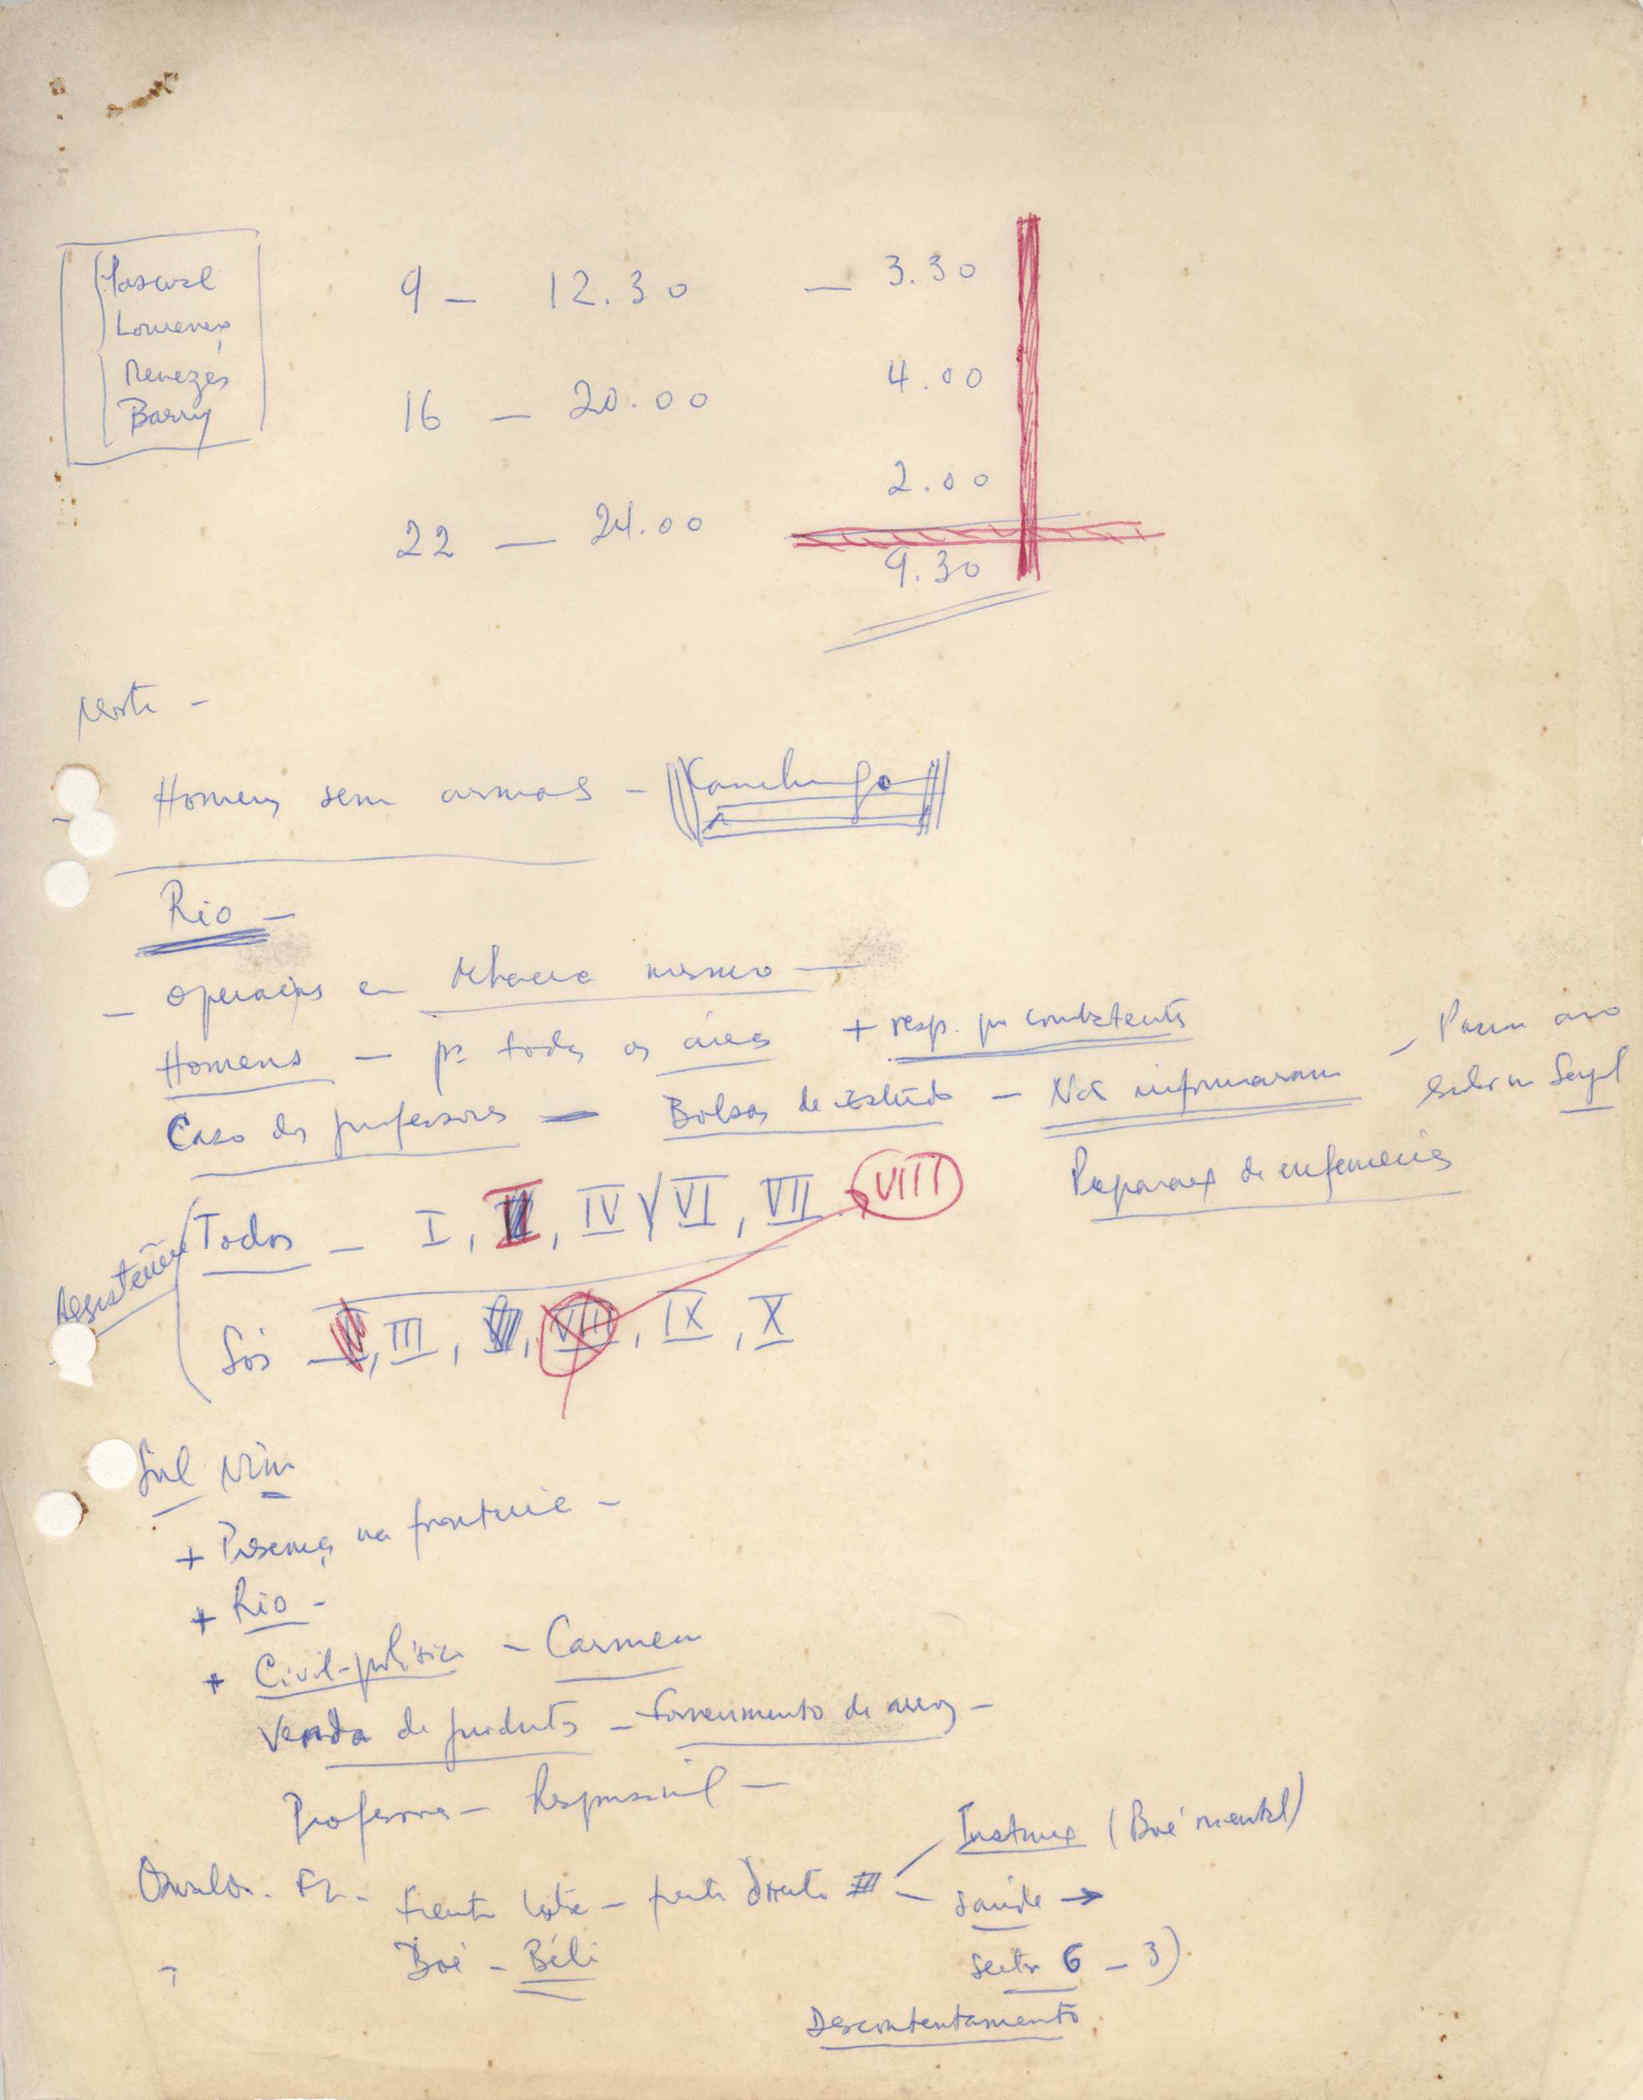 Pascoal
Lourenço
Menezes
Barry
9 – 12.30 – 3.30
16 – 20.00 4.00
22 – 24.00 2.00
9.30
Norte –
– Homens sem armas – Canchungo
Rio –
– operações em mesmo –
Homens – pª todas as áreas + resp. por combatentes
Caso dos professores – Bolsas de Estudo – Não informaram –
Preparação de enfermeiras
Assistência
Todos – I, II, IV, VI, VII, VIII
Sós – III, VIII, IX, X
Sul
+ Presença na fronteira –
+ Rio –
+ Civil-política – Carmen
Venda de produtos – Fornecimento de arroz –
Professores – Responsável –
Osvaldo. –
Frente Leste – – Instrução (Boé
– saúde →
Boé – Béli
sector 6 – 3)
Descontentamento.